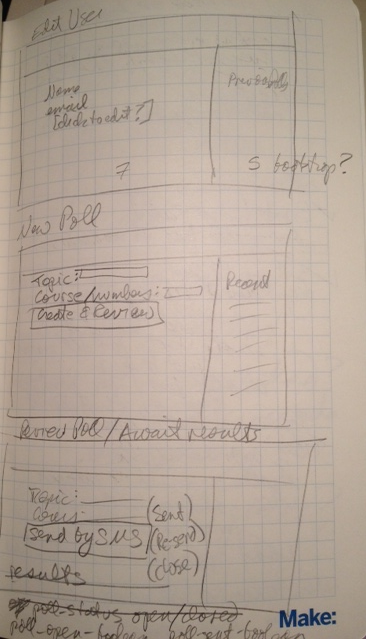 Edit User
Name
email
[click to edit?]
Previously
7
5 bootstrap?
New Poll
Topic:
Course/numbers:
Create & Review
Recent
Review Poll / Await results
Topic:
(Sent)
Send by SMS
(Resend)
(close)
results
poll-status open/closed
poll-open-boolean poll-sent-boolean
Make: